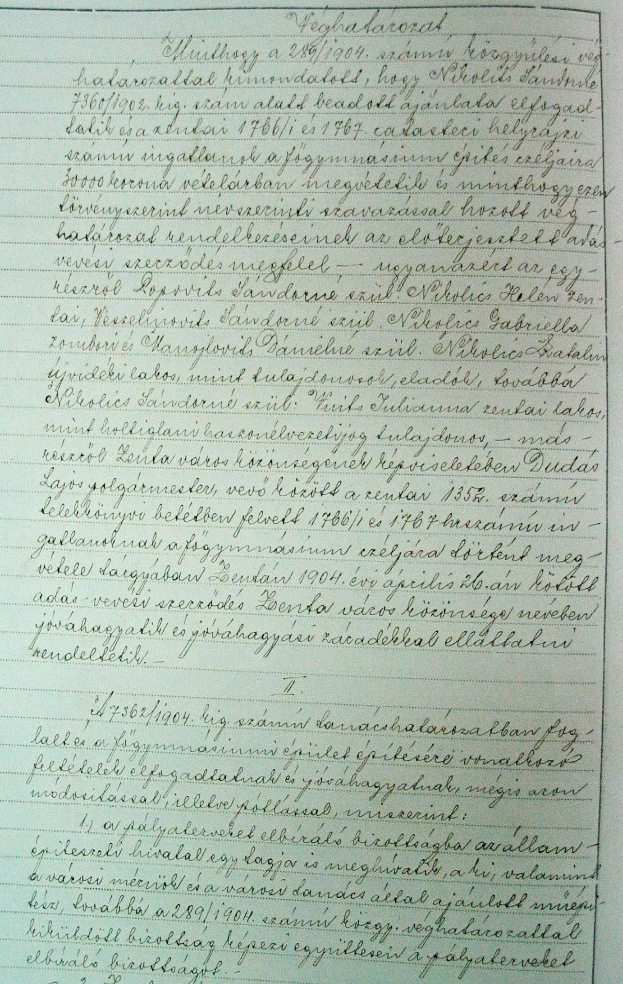 Véghatározat
Minthogy a 289/1904. számú közgyűlési vég-
határozattal kimondatott, hogy Nikolits Sándorné
7360/1902. kig. szám alatt beadott ajánlata elfogad-
tatik és a zentai 1766/1 és 1767. catasteri helyrajzi
számú ingatlanok a főgymnásium építés czéljaira
30000 korona vételárban megvétetik és minthogy ezen
törvényszerint névszerinti szavazással hozott vég-
határozat rendelkezéseinek az előterjesztett adás-
vevési szerződés megfelel – ugyanazért az egy-
részről Popovits Sándorné szül. Nikolics Helén zen-
tai, Veszelinovits Sándorné szül. Nikolics Gabriella
zombori és Manojlovits Dánielné szül. Nikolics Katalin
újvidéki lakos, mint tulajdonosok, eladók, továbbá
Nikolics Sándorné szül: Vuits Julianna zentai lakos,
mint holtiglani haszonélvezeti jog tulajdonos, – más-
részről Zenta város közönségének képviseletében Dudás
Lajos polgármester, vevő között a zentai 1352. számú
telekkönyvi betétben felvett 1766/1 és 1767 hrszámú in-
gatlanoknak a főgymnásium czéljára történt meg-
vétele tárgyában Zentán 1904. évi április 26.-án kötött
adás-vevési szerződés Zenta város közönsége nevében
jóváhagyatik és jóváhagyási záradékkal elláttatni
rendeltetik. –
II.
A 7362/1904. kig. számú tanácshatározatban fog-
lalt és a főgymnásiumi épület építésére vonatkozó
feltételek elfogadtatnak és jóváhagyatnak, mégis azon
módosítással, illetve pótlással, miszerint:
1.) a pályaterveket elbíráló bizottságba az állam-
építészeti hivatal egy tagja is meghívatik, a ki, valamint
a városi mérnök és a városi tanács által ajánlott műépí-
tész, továbbá a 289/1904. számú közgy. véghatározattal
kiküldött bizottság képezi együttesen a pályaterveket
elbíráló bizottságot. –